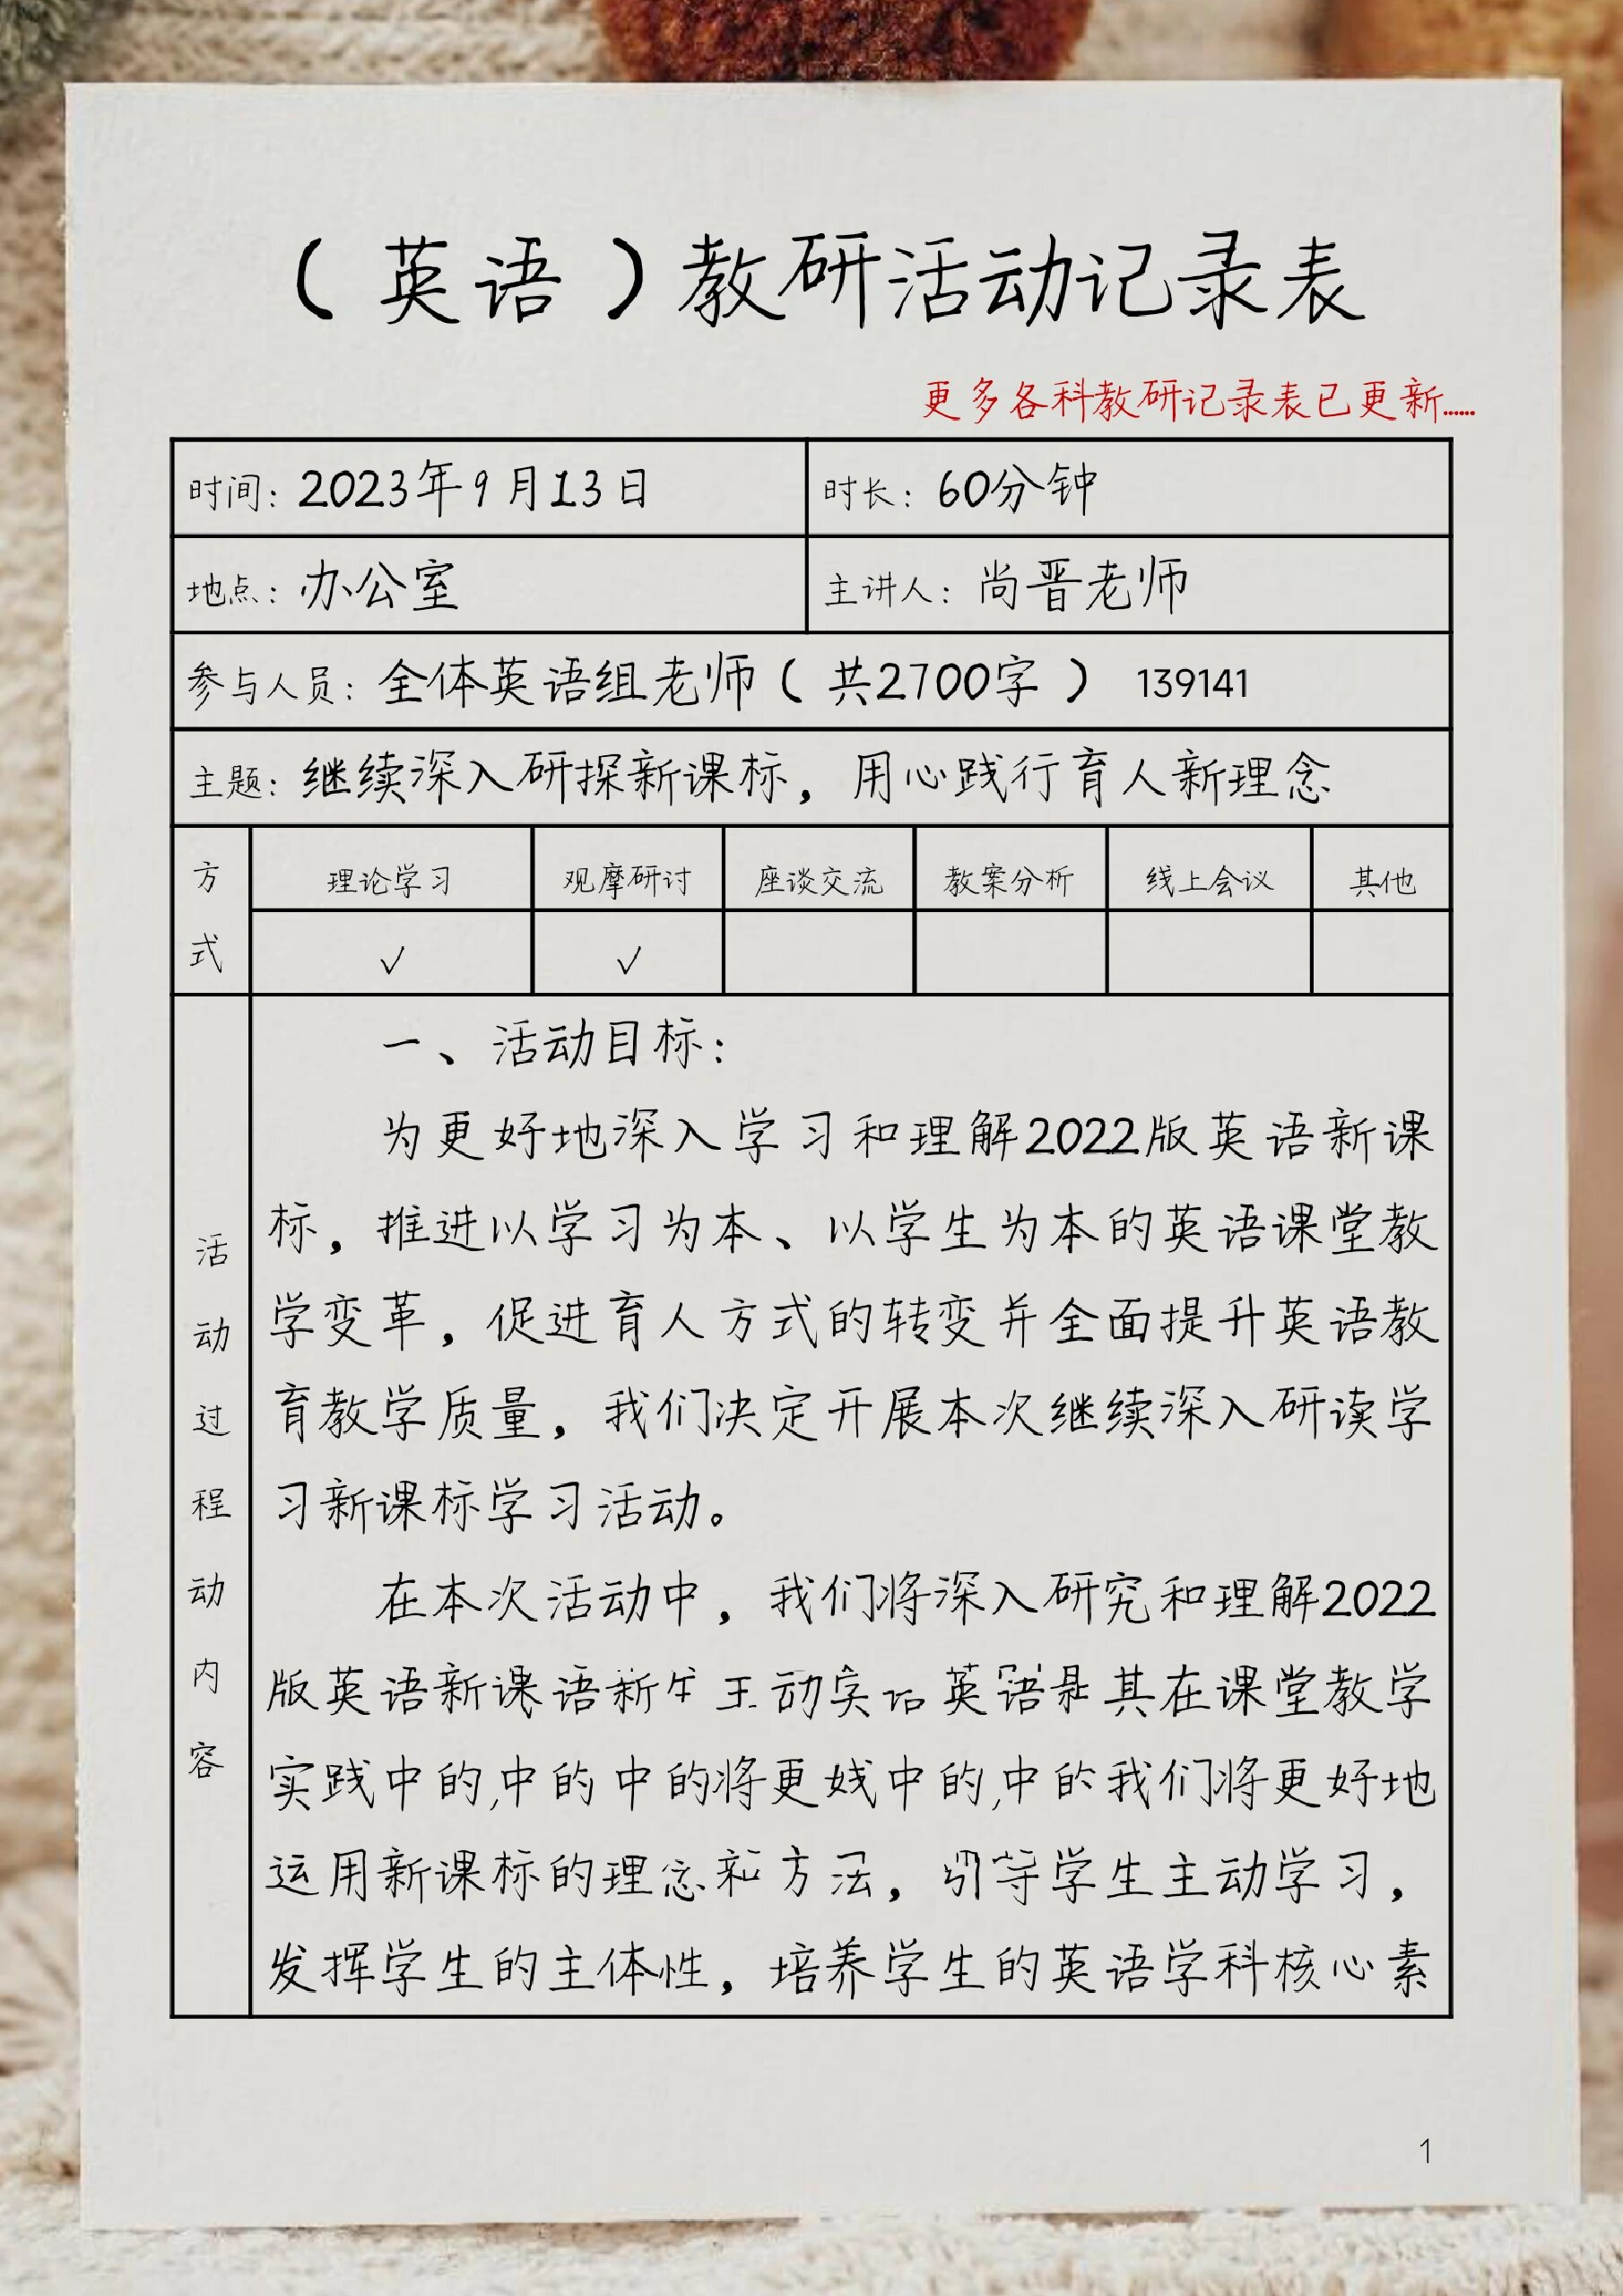 （英语）教研活动记录表
更多各科教研记录表已更新……
时间：2023年9月13日 时长：60分钟
地点：办公室 主讲人：尚晋老师
参与人员：全体英语组老师（共2700字） 139141
主题：继续深入研探新课标，用心践行育人新理念
方式 理论学习 观摩研讨 座谈交流 教案分析 线上会议 其他
√ √
活动过程动内容
一、活动目标：
为更好地深入学习和理解2022版英语新课
标，推进以学习为本、以学生为本的英语课堂教
学变革，促进育人方式的转变并全面提升英语教
育教学质量，我们决定开展本次继续深入研读学
习新课标学习活动。
在本次活动中，我们将深入研究和理解2022
版英语新课语新 动 英语 其在课堂教学
实践中的,中的中的将更 中的,中的我们将更好地
运用新课标的理念和方法， 学生主动学习，
发挥学生的主体性，培养学生的英语学科核心素
1